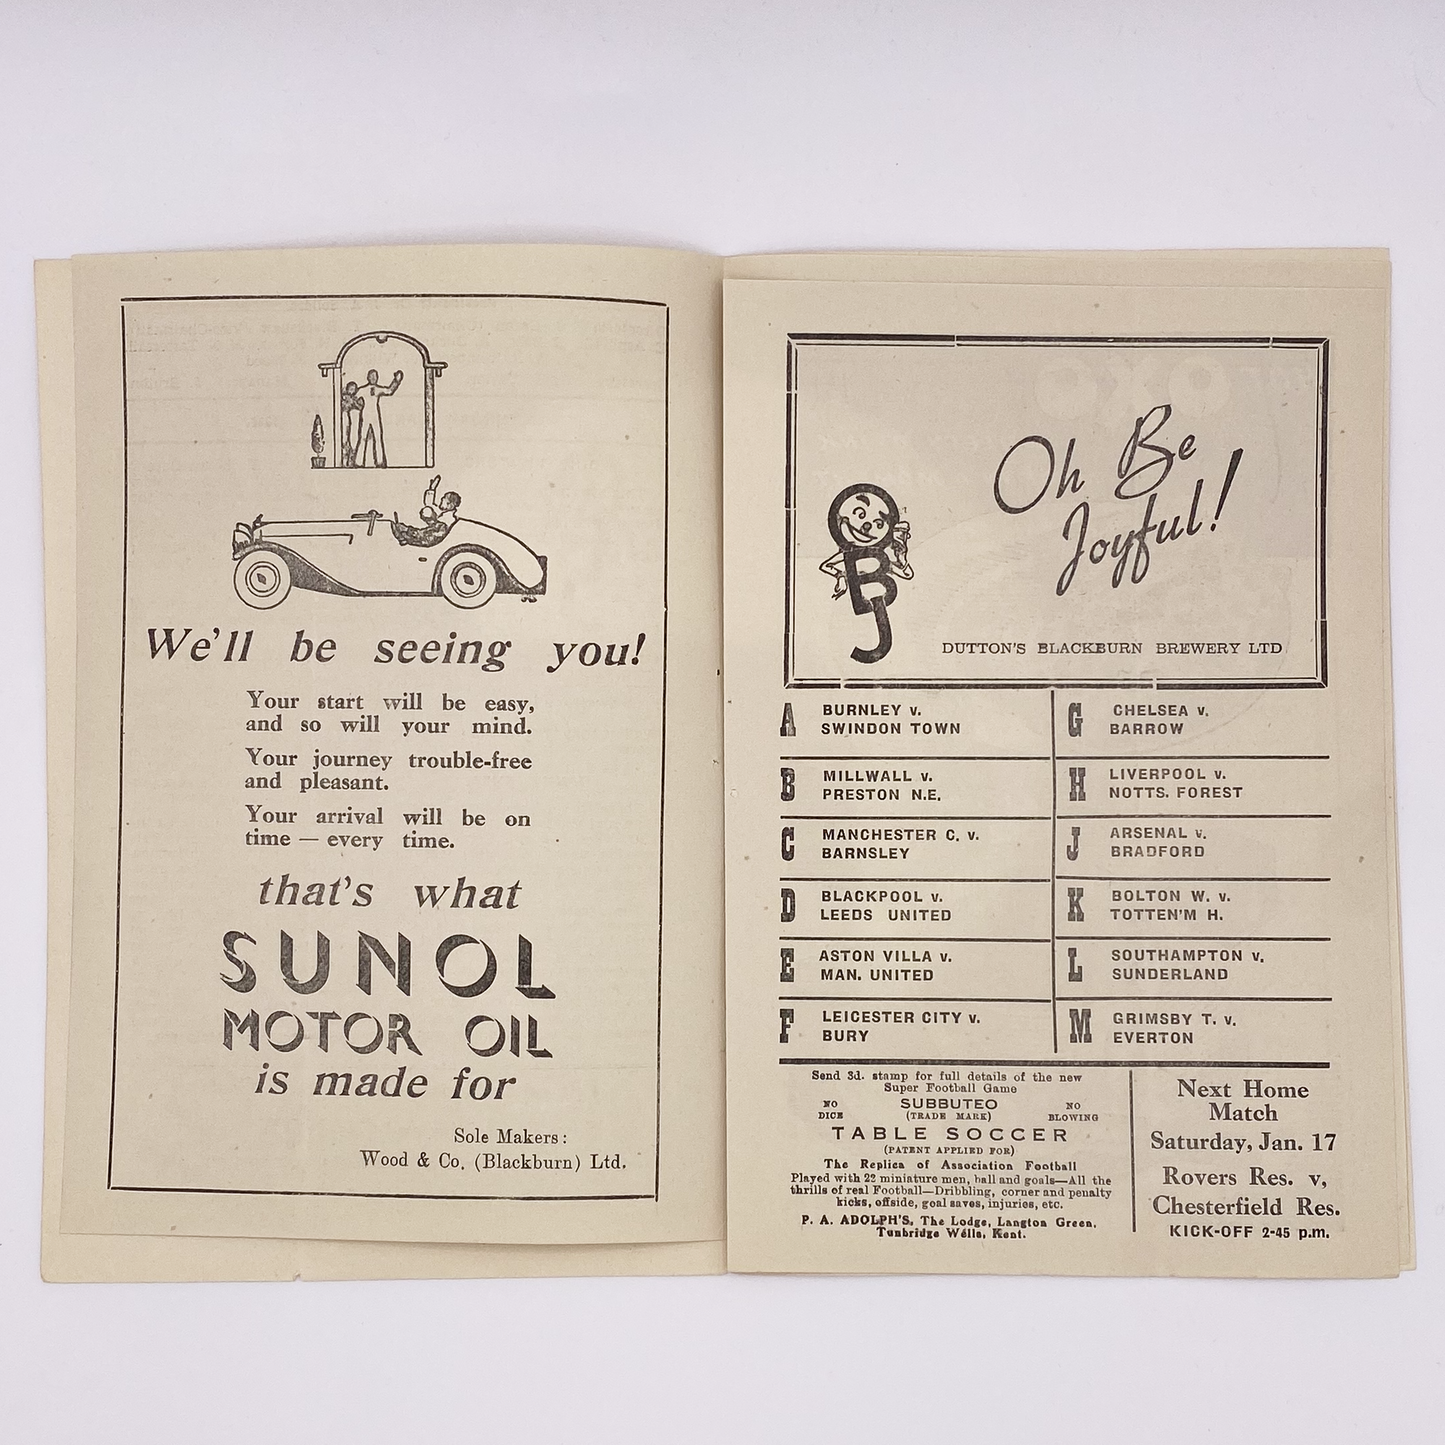 We'll be seeing you!
Your start will be easy,
and so will your mind.
Your journey trouble-free
and pleasant.
Your arrival will be on
time — every time.
that's what
SUNOL
MOTOR OIL
is made for
Sole Makers:
Wood & Co. (Blackburn) Ltd.
Oh Be
Joyful!
OBJ
DUTTON'S BLACKBURN BREWERY LTD
A BURNLEY v.
SWINDON TOWN
B MILLWALL v.
PRESTON N.E.
C MANCHESTER C. v.
BARNSLEY
D BLACKPOOL v.
LEEDS UNITED
E ASTON VILLA v.
MAN. UNITED
F LEICESTER CITY v.
BURY
G CHELSEA v.
BARROW
H LIVERPOOL v.
NOTTS. FOREST
J ARSENAL v.
BRADFORD
K BOLTON W. v.
TOTTEN'M H.
L SOUTHAMPTON v.
SUNDERLAND
M GRIMSBY T. v.
EVERTON
Send 3d. stamp for full details of the new
Super Football Game
NO DICE SUBBUTEO NO BLOWING
(TRADE MARK)
TABLE SOCCER
(PATENT APPLIED FOR)
The Replica of Association Football
Played with 22 miniature men, ball and goals—All the
thrills of real Football—Dribbling, corner and penalty
kicks, offside, goal saves, injuries, etc.
P. A. ADOLPH'S, The Lodge, Langton Green,
Tunbridge Wells, Kent.
Next Home
Match
Saturday, Jan. 17
Rovers Res. v,
Chesterfield Res.
KICK-OFF 2-45 p.m.